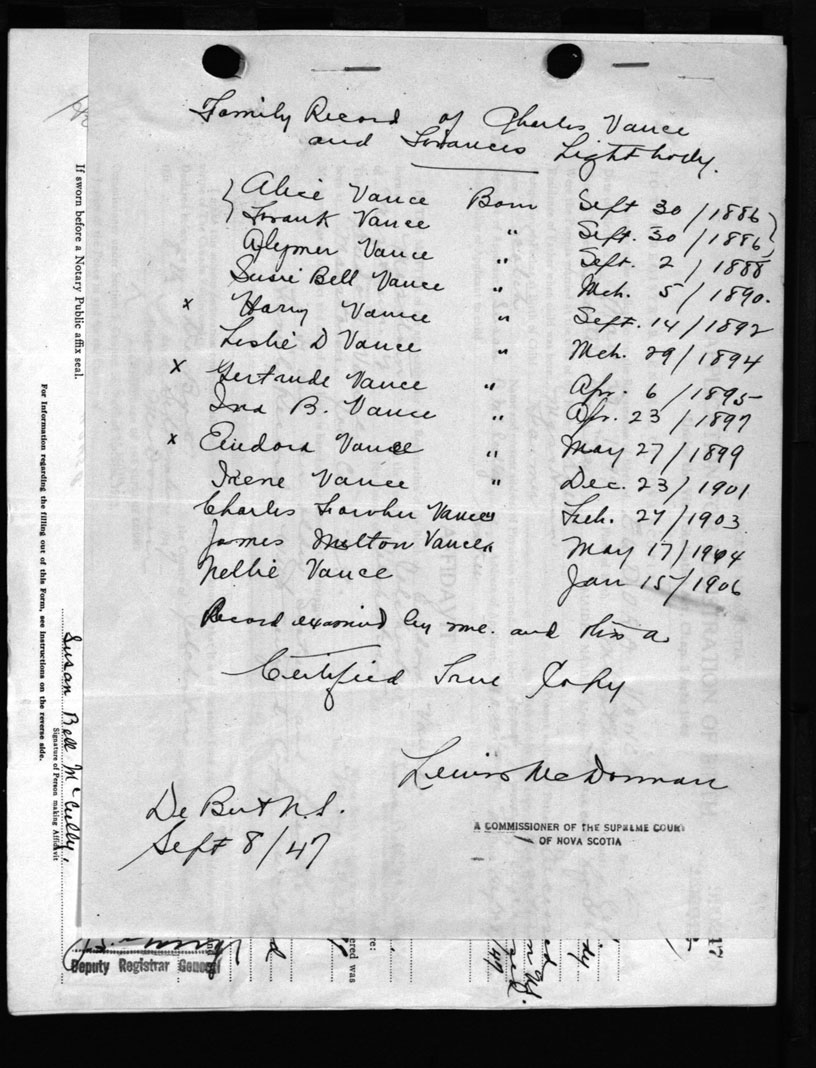 Family Record of Charles Vance
and Frances Lightbody.
Alice Vance Born Sept 30/1886
Frank Vance " Sept. 30/1886
Aylymer Vance " Sept. 2/1888
Susie Bell Vance " Mch. 5/1890.
x Harry Vance " Sept. 14/1892
Leslie D Vance " Mch. 29/1894
x Gertrude Vance " Apr. 6/1895
Ina B. Vance " Apr. 23/1897
x Eudora Vance " May 27/1899
Irene Vance " Dec. 23/1901
Charles Vance " Feb. 27/1903
James Milton Vance " May 17/1904
Nellie Vance Jan 15/1906
Record examined by me. and this a
Certified True Copy
Lewis McDorman
De Bert N.S.
Sept 8/47
A COMMISSIONER OF THE SUPREME COURT
OF NOVA SCOTIA
If sworn before a Notary Public affix seal.
For Information regarding the filling out of this Form, see instructions on the reverse side.
Susan Bell McCully,
Signature of Person making Affidavit
Deputy Registrar General
re:
ered was
17